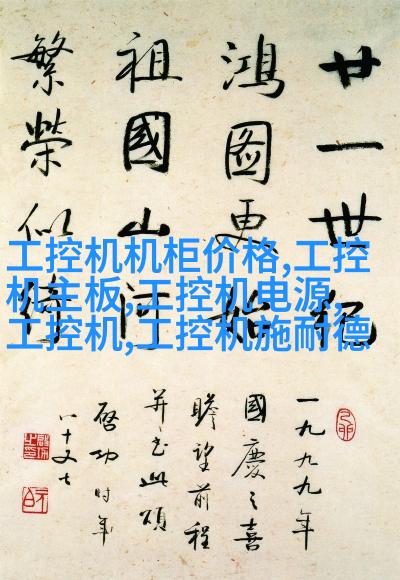 工控机机柜价格,工控
机主板,工控机电源,
工控机,工控机施耐德
廿一世紀
鴻圖更始
祖國山河
繁榮似綺
一九九九年
國慶之喜
瞻望前程
并书此頌
啓功时年
八十又七